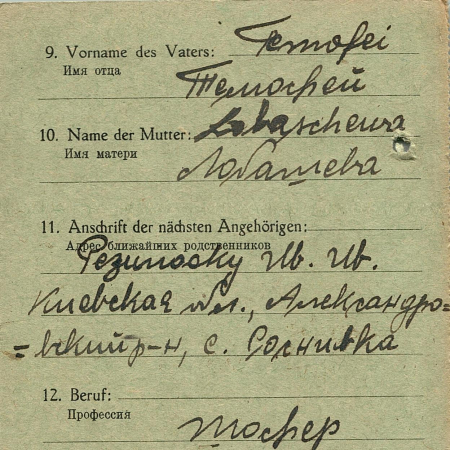 9. Vorname des Vaters: Temofei
Имя отца
Темофей
10. Name der Mutter: Lobaschewa
Имя матери
Лобашева
11. Anschrift der nächsten Angehörigen:
Адрес ближайших родственников
Iw. Iw.
Киевская обл., Александро-
=вский р-н, с. Соснивка
12. Beruf:
Профессия
шофер